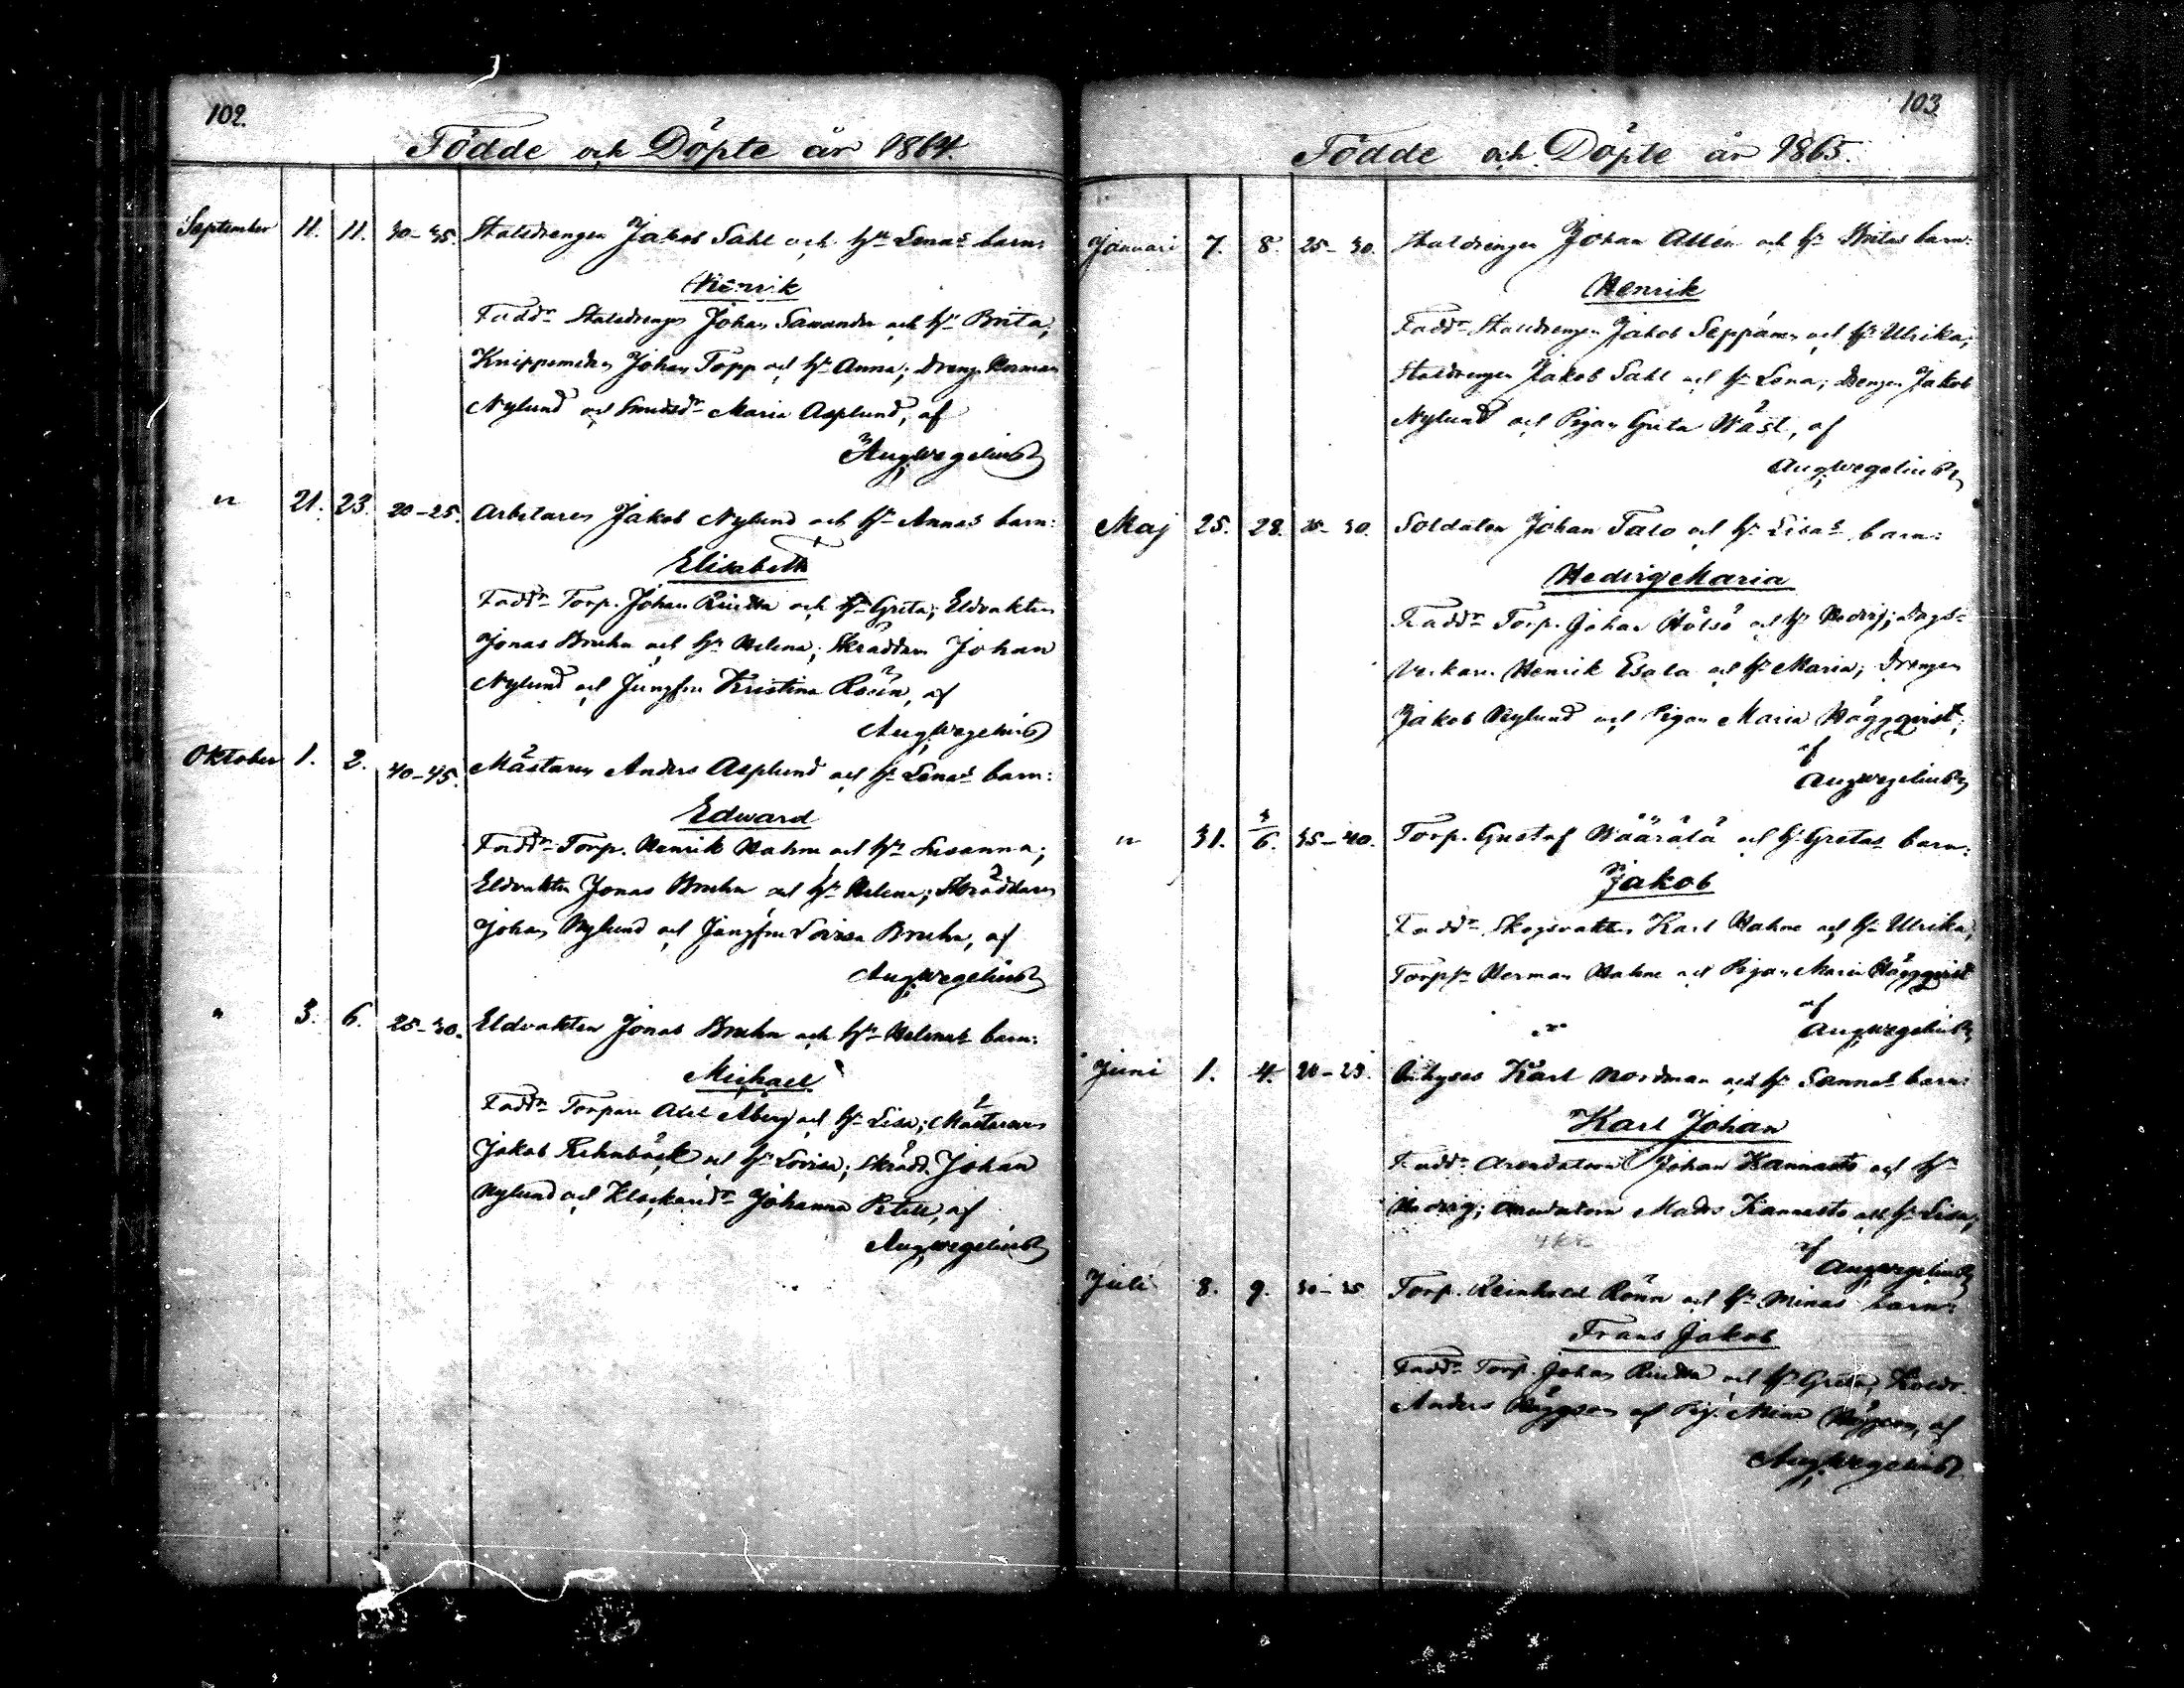 102.
Födde och Döpte år 1864.
September 11. 11. 30-35. Stalldrengen Jakob Sahl och hu Lenas barn:
Henrik
Faddr Stalldrengen Johan Sawander och hu Brita;
Knippsmeden Johan Topp och hu Anna; Dreng Herman
Nylund och Smedsdr Maria Asplund, af
AugWegelius
" 21. 23. 20-25. Arbetaren Jakob Nylund och hu Annas barn:
Elisabeth
Faddr Torp. Johan Riutta och hu Greta; Eldvakten
Jonas Bruhn och hu Helena; Skräddaren Johan
Nylund och Jungfru Kristina Rönn, af
AugWegelius
Oktober 1. 2. 40-45. Mästaren Anders Asplund och hu Lenas barn:
Edward
Faddr Torp. Henrik Hahne och hu Susanna;
Eldvakten Jonas Bruhn och hu Helena; Skräddaren
Johan Nylund och Jungfru Lovisa Bruhn, af
AugWegelius
" 3. 6. 25-30. Eldvakten Jonas Bruhn och hu Helenas barn:
Michael
Faddr Torpare Axel Åberg och hu Lisa; Mästaren
Jakob Rehnbäck och hu Lovisa; Skrädd. Johan
Nylund och Klockaredr Johanna Petell, af
AugWegelius
103
Födde och Döpte år 1865.
Januari 7. 8. 25-30. Stalldrengen Johan Allén och hu Britas barn:
Henrik
Faddr Stalldrengen Jakob Seppänen och hu Ulrika;
Stalldrengen Jakob Sahl och hu Lena; Drengen Jakob
Nylund och Pigan Greta Wäst, af
AugWegelius
Maj 25. 28. 25-30. Soldaten Johan Talo och hu Lisas barn:
Hedvig Maria
Faddr Torp. Johan Hölsö och hu Hedvig; Dags-
verkare Henrik Esala och hu Maria; Drengen
Jakob Nylund och Pigan Maria Häggqvist;
af
AugWegelius
" 31. 3/6. 35-40. Torp. Gustaf Määrälä och hu Gretas barn:
Jakob
Faddr Skogsvakten Karl Hahne och hu Ulrika;
Torps Herman Hahne och Pigan Maria Häggqvist
af
AugWegelius
Juni 1. 4. 20-25. Inhyses Karl Nordman och hu Sannas barn:
Karl Johan
Faddr Arendatorn Johan Kannasto och hu
Hedvig; Arendatorn Mads Kannasto och hu Lisa;
af
AugWegelius
Juli 8. 9. 30-35 Torp. Reinhold Rönn och hu Minas barn:
Frans Jakob
Faddr Torp. Johan Riutta och hu Greta;
Anders och Pig. Mina af
AugWegelius